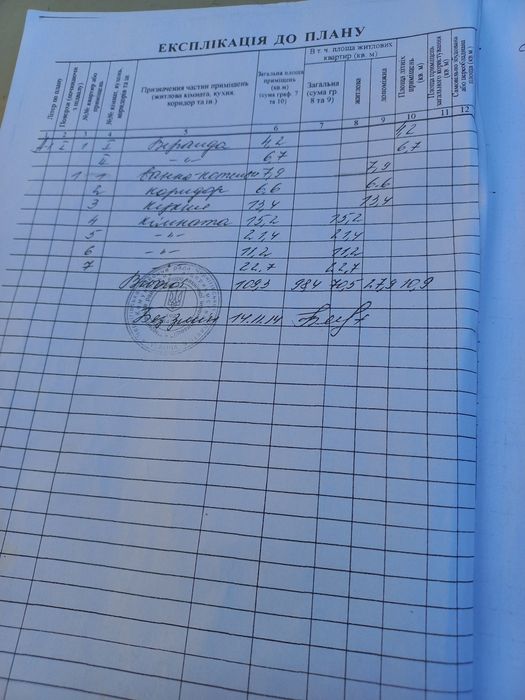 ЕКСПЛІКАЦІЯ ДО ПЛАНУ
Літер по плану
Поверхи (починаючи з підвалу)
№№ квартир або приміщень
№№ кімнат, кухонь, коридорів та ін.
Призначення частин приміщень (житлова кімната, кухня, коридор та ін.)
Загальна площа приміщень (кв м) (сума граф. 7 та 10)
В т. ч. площа житлових квартир (кв. м)
Загальна (сума гр 8 та 9)
житлова
допоміжна
Площа літніх приміщень (кв. м)
Площа приміщень загального користування (кв. м)
Самовільно збудована або переобладнана площа (кв м)
1 2 3 4 5 6 7 8 9 10 11 12
А-1 2 1 Веранда 4,2 4,2
-"- 6,7 6,7
1 1 7,9 7,9
2 коридор 6,6 6.6
3 кухня 13,4 13,4
4 кімната 15,2 15,2
5 -"- 21,4 21,4
6 -"- 11,2 11,2
7 22,7 22,7
Всього 109,3 98,4 70,5 27,9 10,9
Без змін 14.11.14